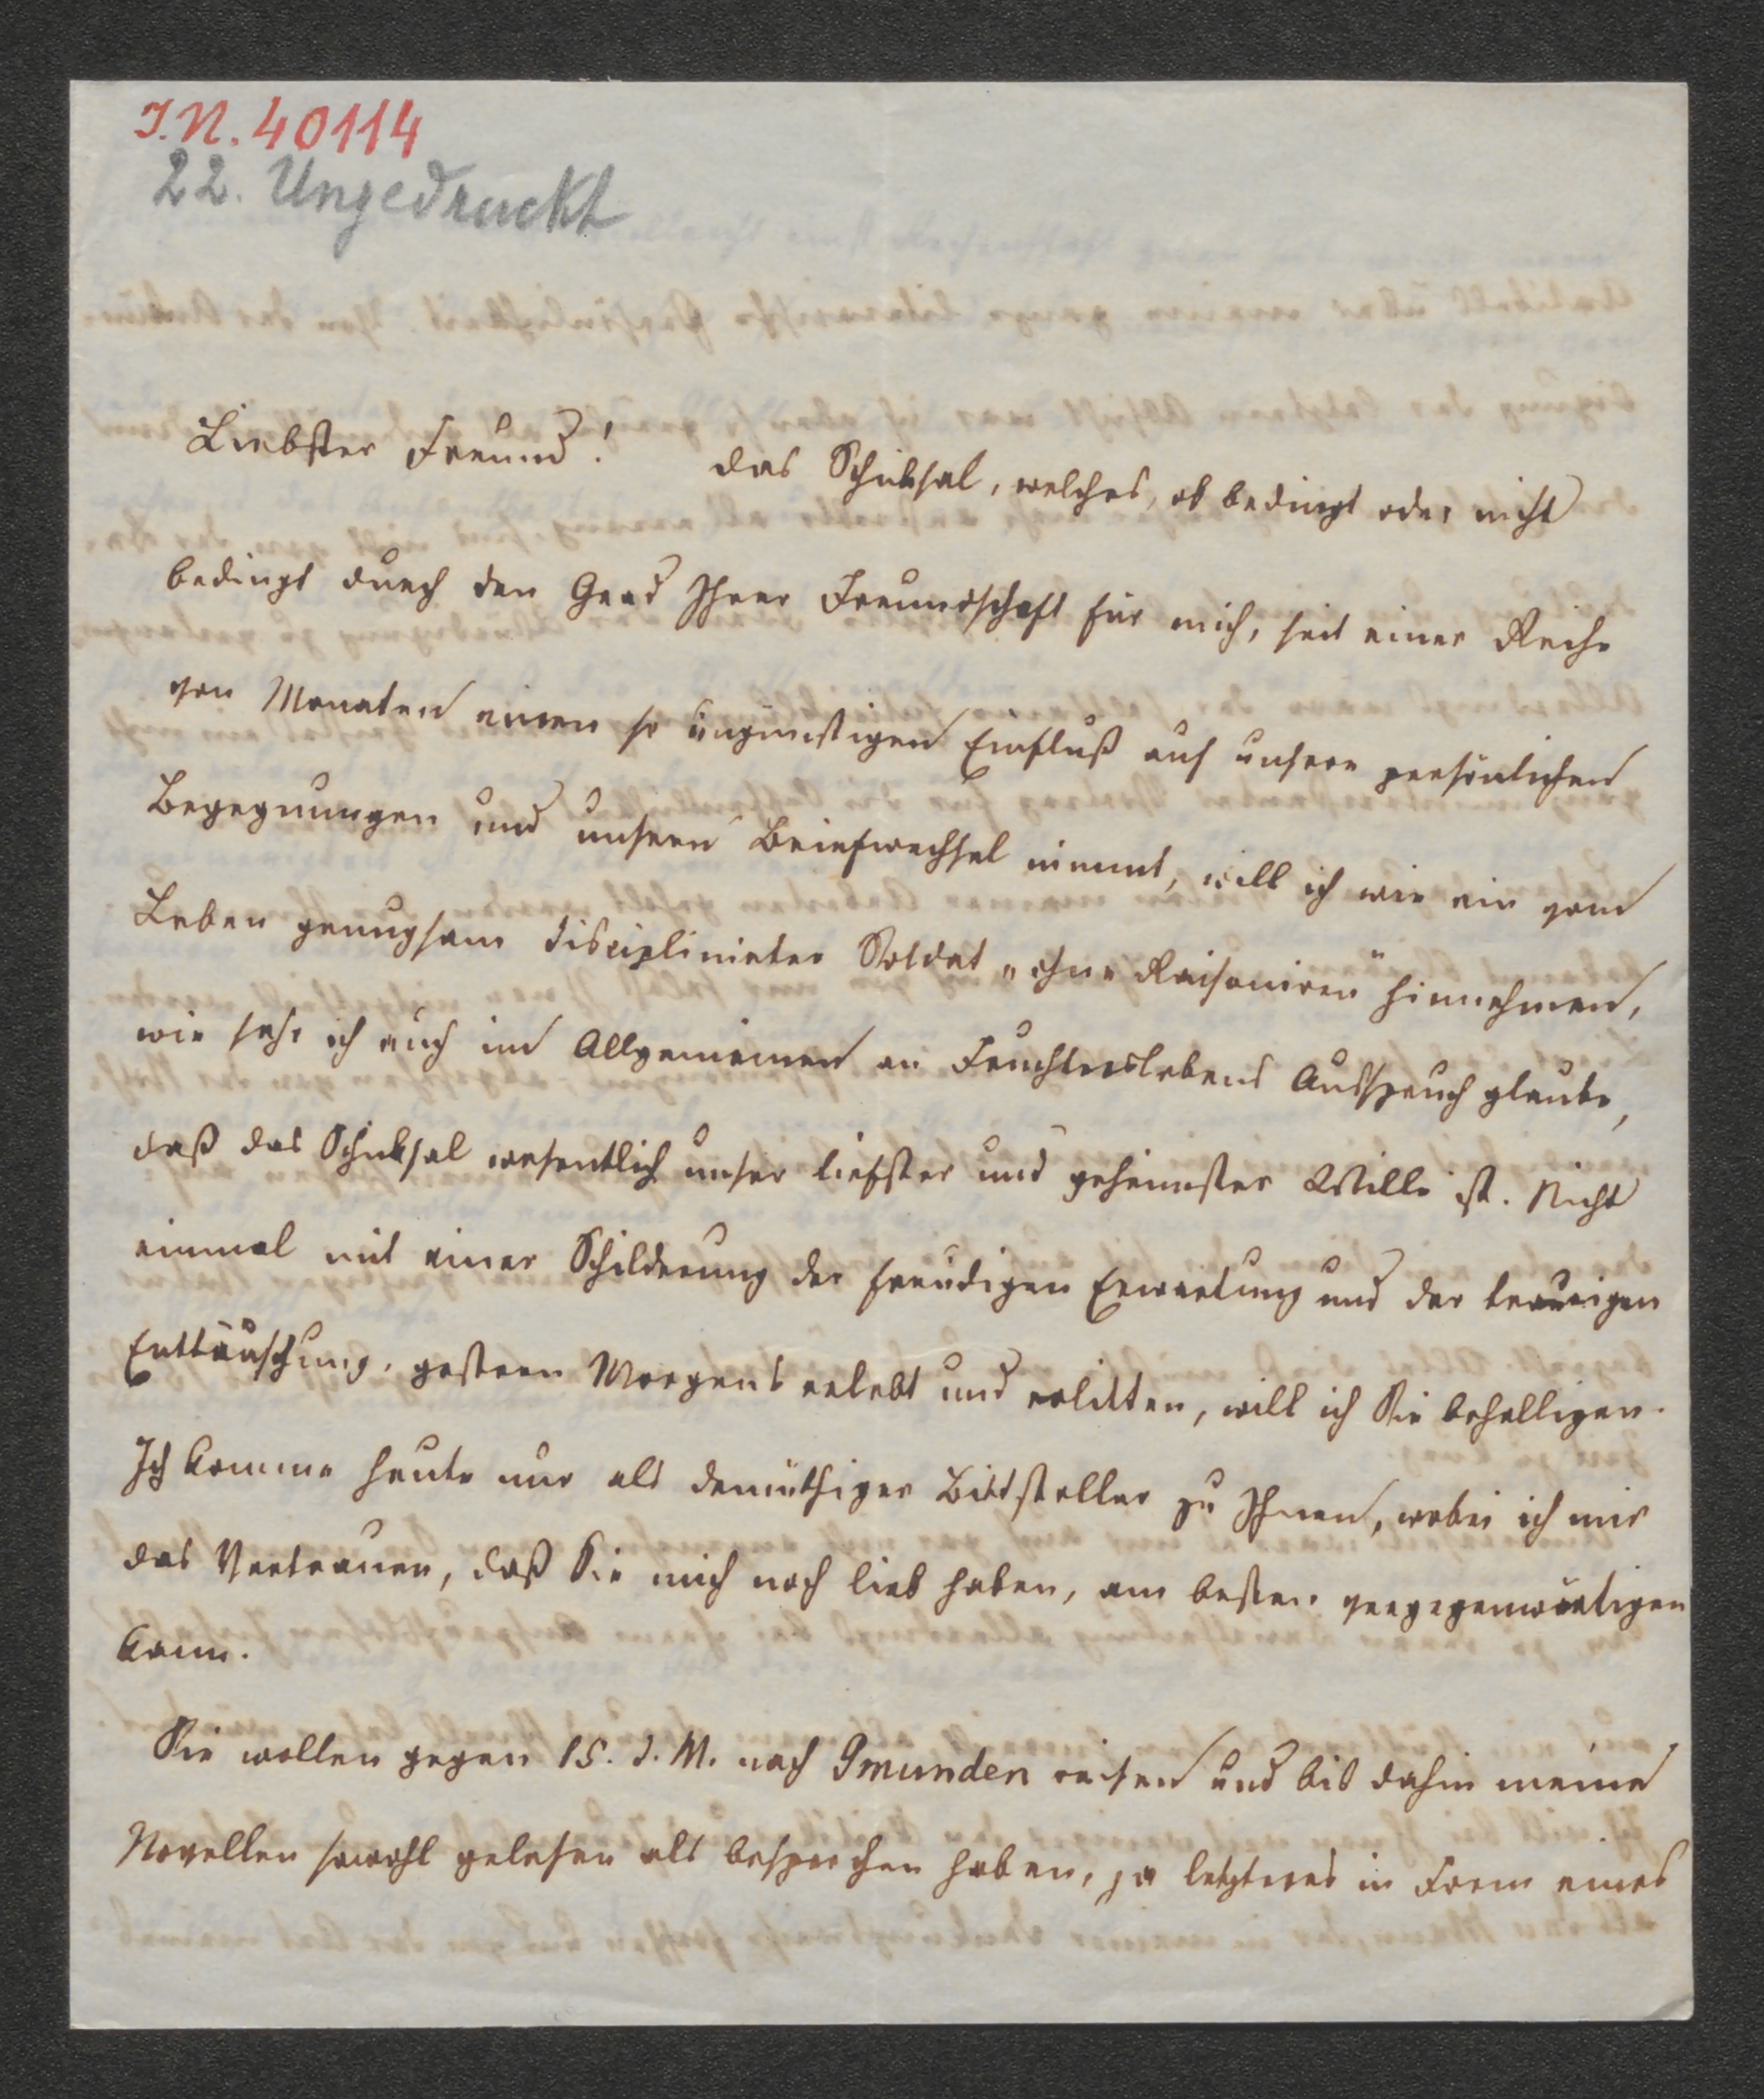 I.N. 40114
22. Ungedruckt
Liebster Freund! Das Schiksal, welches, ob bedingt oder nicht
bedingt durch den Grad Ihrer Freundschaft für mich, seit einer Reihe
von Monaten einen so ungünstigen Einfluß auf unsere persönlichen
Begegnungen und unsern Briefwechsel nimmt, will ich wie ein vom
Leben genugsam disciplinirter Soldat „ohne Raisoniren" hinnehmen,
wie sehr ich auch im Allgemeinen an Feuchterslebens Ausspruch glaube,
daß das Schiksal wesentlich unser tiefster und geheimster Wille ist. Nicht
einmal mit einer Schilderung der freudigen Erwartung und der traurigen
Enttäuschung, gestern Morgens erlebt und erlitten, will ich Sie behelligen.
Ich komme heute nur als demüthiger Bittsteller zu Ihnen, wobei ich mir
das Vertrauen, daß Sie mich noch lieb haben, am besten vergegenwärtigen
kann.
Sie wollen gegen 15. d. M. nach Gmunden reisen und bis dahin meine
Novellen sowohl gelesen als besprochen haben, ja letzteres in Form eines